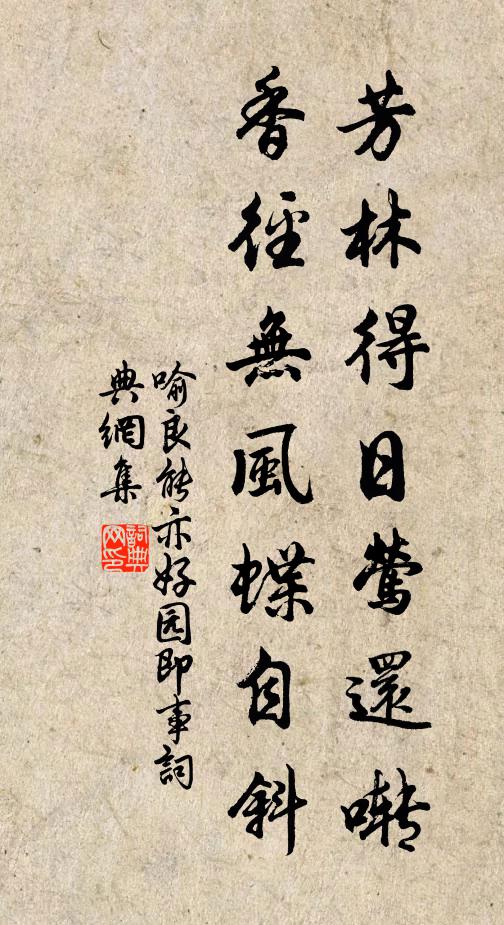 芳林得日鶯還囀
香徑無風蝶自斜
喻良能亦好园即事詞
典網集
詞典網印